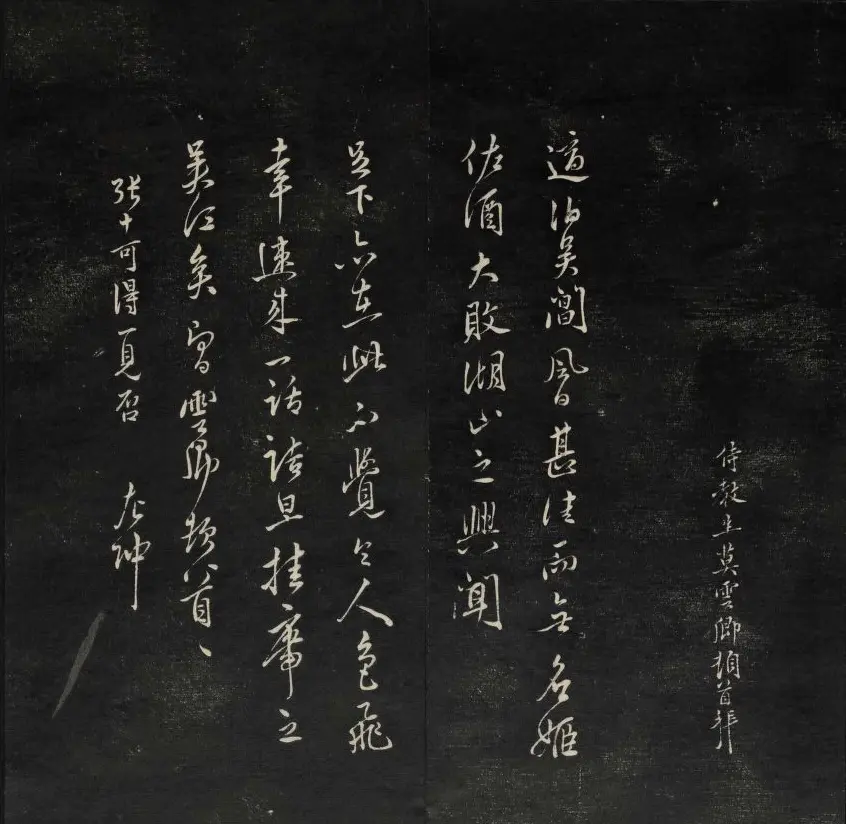 侍教生莫雲卿頓首拜
適泊吳閶風日甚佳而無名姬
佐酒大敗湖山之興聞
足下亦在此不覺令人色飛
幸速來一話詰旦挂席之
吳江矣雲卿頓首
張十可得見否